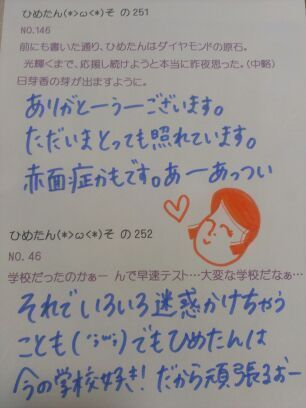 ひめたん(*>ω<*)そ の251
NO.146
前にも書いた通り、ひめたんはダイヤモンドの原石。
光輝くまで、応援し続けようと本当に昨夜思った。(中略)
日芽香の芽が出ますように。
ありがとーうーございます。
ただいまとっても照れています。
赤面症かもです。あーあっつい
ひめたん(*>ω<*)そ の252
NO.46
学校だったのかぁー んで早速テスト…大変な学校だなぁ…
それでいろいろ迷惑かけちゃう
ことも(´;ω;`)でもひめたんは
今の学校好き!だから頑張るおー